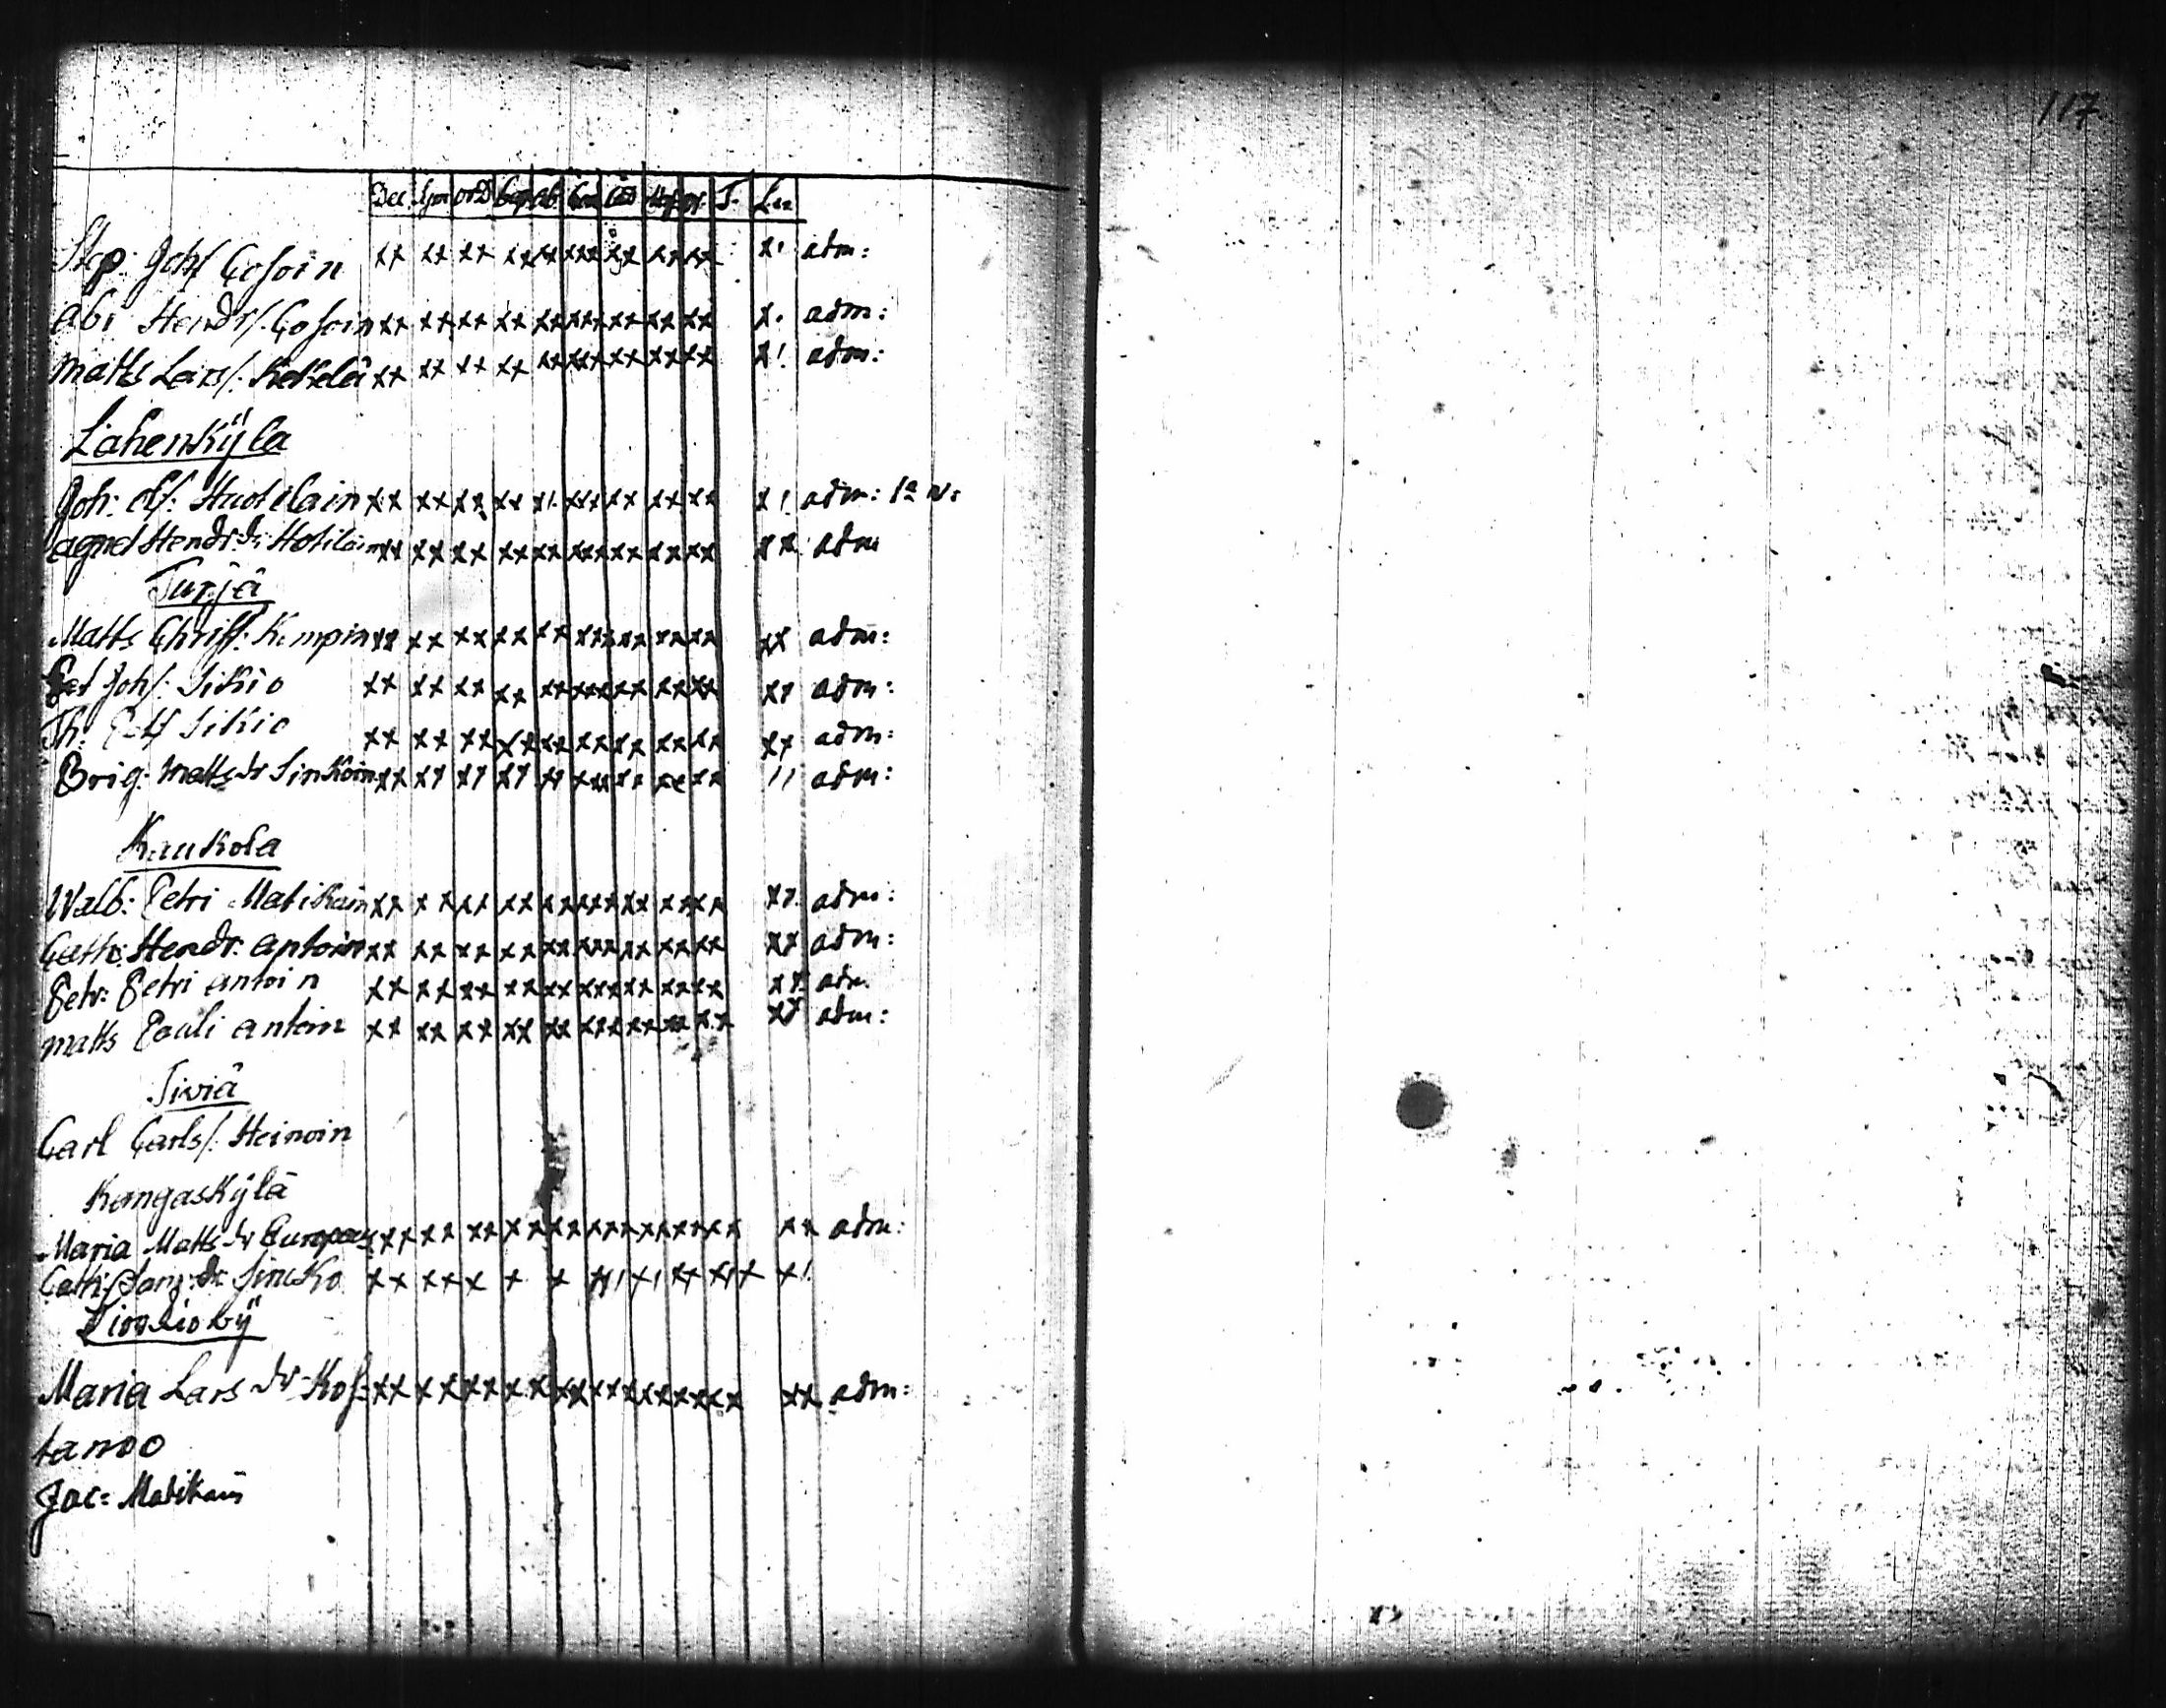 117
Dec Sÿm orD Bap ab Cœn T. Lu
Step: Johs Cosoin xx xx xx xx xx xxx xx xx xx x! adm:
Abr Hendrs/. Cosoin xx xx xx xx xx xxx xx xx xx x. adm:
Matts Lars/. Kekelä xx xx xx xx xx xxx xx xx xx x! adm:
LahenKÿla
Joh: Ols: Huotilain xx xx xx xx x!. xxx xx xx xx x! adm: 1a v:
Agnet Hendr: dr Hotilain xx xx xx xx xx xxx xx xx xx xx adm
Turjä
Matts Christ: Kempin xx xx xx xx xx xxx xx xx xx xx adm:
Pet Johs/. Sikio xx xx xx xx xx xxx xx xx xx xx adm:
Th: Pets Sikio xx xx xx xx xx xx xx xx xx xx adm:
Brig: Matts dr Sinkoin xx xx xx xx xx xxx xx xx xx 11 adm:
Kaukola
Walb: Petri Matikain xx xx xx xx xx xxx xx xx xx xx adm:
Cath: Hendr: Antoin xx xx xx xx xx xxx xx xx xx xx adm:
Petr: Petri Antoin xx xx xx xx xx xxx xx xx xx xx adm.
Matts Pauli Antoin xx xx xx xx xx xxx xx xx xx xx adm:
Tiviä
Carl Carls/. Heinoin
Kangaskÿlä
Maria Matts dr Europaeus xx xx xx xx xx xxx xx xx xx xx adm:
Cath: dr Sincko xx xx x x x x! x! xx x! x x!
Maria Lars dr Kos= xx xx xx xx xx xx xx xx xx xx adm:
tamoo
Jac= Matikain